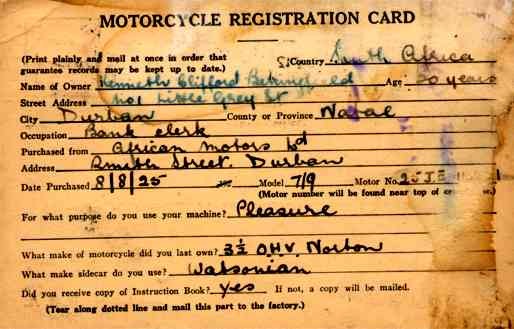 MOTORCYCLE REGISTRATION CARD
(Print plainly and mail at once in order that Country South Africa
guarantee records may be kept up to date.)
Name of Owner Kenneth Clifford Age 20 years
Street Address No 1 Little Grey St
City Durban County or Province Natal
Occupation Bank clerk
Purchased from African Motors Ltd
Address Smith Street. Durban
Date Purchased 8/8/25 Model 7/9 Motor No. 25JE
(Motor number will be found near top of
For what purpose do you use your machine? Pleasure
What make of motorcycle did you last own? 3½ O.H.V. Norton
What make sidecar do you use? Watsonian
Did you receive copy of Instruction Book? Yes If not, a copy will be mailed.
(Tear along dotted line and mail this part to the factory.)